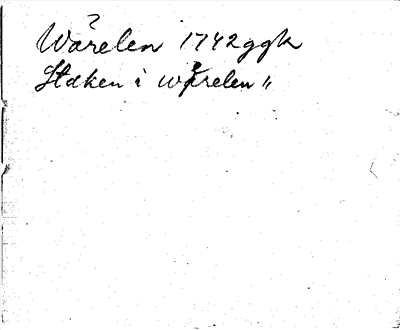 ?
Wärelen 1742 ggk
Staken i Wärelen "